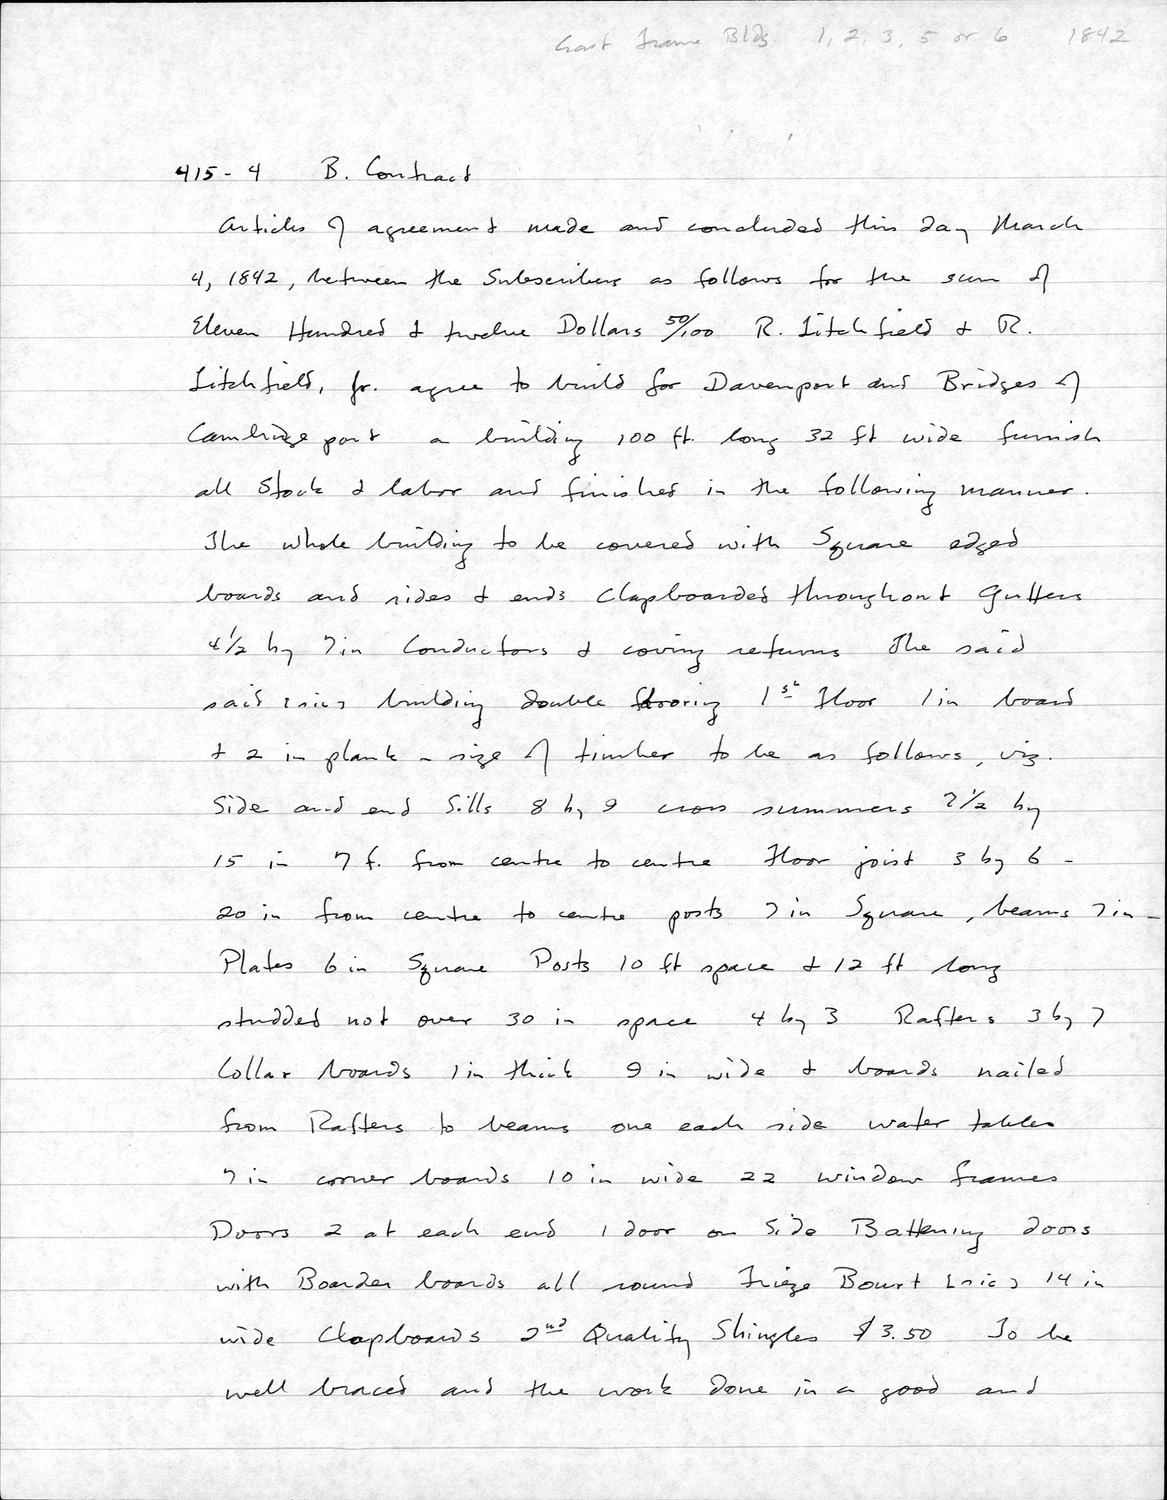 East Frame Blds. 1, 2, 3, 5 or 6 1842
415-4 B. Contract
Articles of agreement made and concluded this day March
4, 1842, between the Subscribers as follows for the sum of
Eleven Hundred & twelve Dollars 50/100 R. Litchfield & R.
Litchfield, Jr. agree to build for Davenport and Bridges of
Cambridgeport a building 100 ft. long 32 ft wide furnish
all Stock & labor and finished in the following manner.
The whole building to be covered with Square edged
boards and sides & ends Clapboarded throughout Gutters
4 1/2 by 7 in Conductors & coving returns The said
said [sic] building double flooring 1st Floor 1 in board
& 2 in plank - size of timber to be as follows, viz.
Side and end Sills 8 by 9 cross summers 7 1/2 by
15 in 7 f. from centre to centre Floor joist 3 by 6 -
20 in from centre to centre posts 7 in Square, beams 7 in -
Plates 6 in Square Posts 10 ft space & 12 ft long
studded not over 30 in space 4 by 3 Rafters 3 by 7
Collar boards 1 in thick 9 in wide & boards nailed
from Rafters to beams one each side water tables
7 in corner boards 10 in wide 22 window frames
Doors 2 at each end 1 door on Side Battening doors
with Boarder boards all round Frieze Bourt [sic] 14 in
wide Clapboards 2nd Quality Shingles $3.50 To be
well braced and the work done in a good and